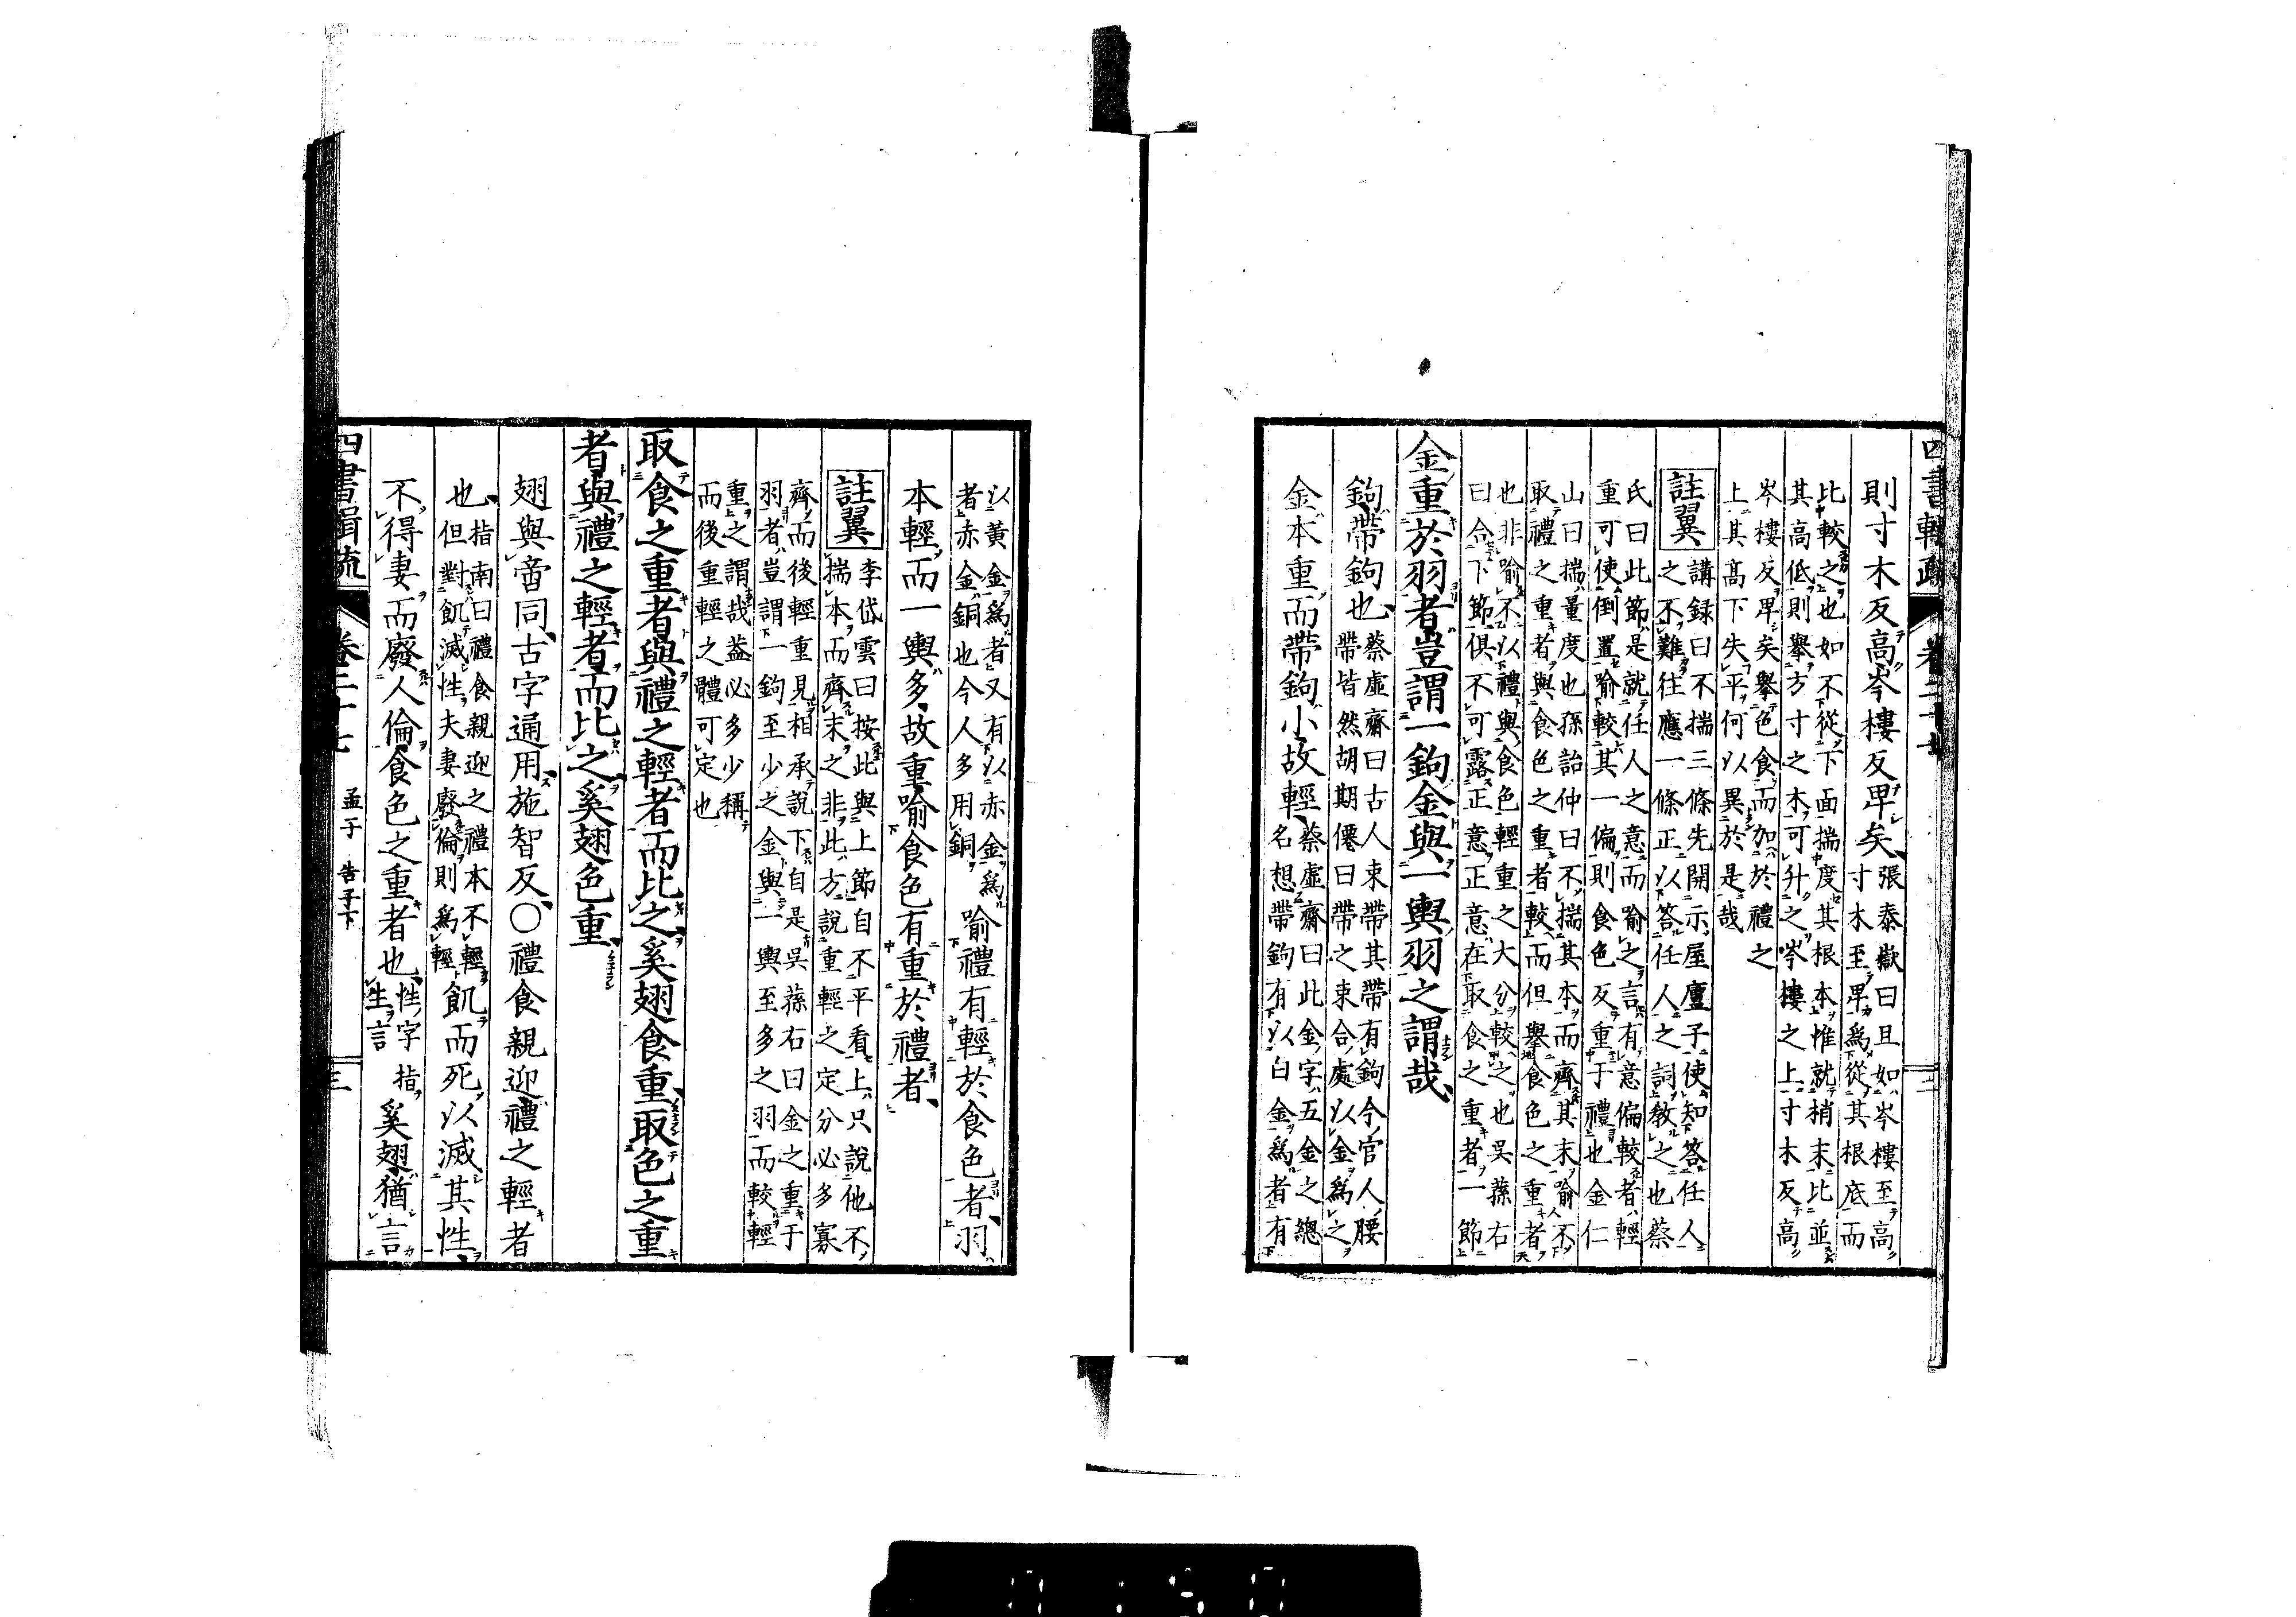 四書輯疏 卷二十七
則寸木反高岑樓反卑矣、
張泰嶽曰且如岑樓至高
寸木至卑爲從其根底而
比較之也如不從下面揣度其根本惟就梢末比並
其高低則擧方寸之木可升之岑樓之上寸木反高
岑樓反卑矣擧色食而加於禮之
上其高下失平何以異於是哉
註翼
講録曰不揣三條先開示屋廬子使知答任人
之不難往應一條正以答任人之詞敎之也蔡
氏曰此節是就任人之意而喻之言有意偏較者輕
重可使倒置喻較其一偏則食色反重于禮也金仁
山曰揣量度也孫詒仲曰不揣其本而齊其末喻不
取禮之重者與食色之重者較而但擧食色之重者
也非喻不以禮與食色輕重之大分較之也吳蓀右
曰合下節俱不可露正意正意在取食之重者一節
金重於羽者豈謂一鉤金與一輿羽之謂哉、
鉤帶鉤也、
蔡虛齋曰古人束帶其帶有鉤今官人腰
帶皆然胡期僊曰帶之束合處以金爲之
金本重而帶鉤小故輕、
蔡虛齋曰此金字五金之總
名想帶鉤有以白金爲者有
以黃金爲者又有以赤金爲
者赤金銅也今人多用銅
喻禮有輕於食色者、羽
本輕而一輿多、故重喻食色有重於禮者、
註翼
李岱雲曰按此與上節自不平看上只說他不
揣本而齊末之非此方說重輕之定分必多寡
齊而後輕重見相承說下自是吳蓀右曰金之重于
羽者豈謂一鉤至少之金與一輿至多之羽而較輕
重之謂哉蓋必多少稱
而後重輕之體可定也
取食之重者與禮之輕者而比之奚翅食重、取色之重
者與禮之輕者而比之奚翅色重、
翅與啻同、古字通用、施智反、〇禮食親迎禮之輕者
也、
指南曰禮食親迎之禮本不輕
但對飢滅性夫妻廢倫則爲輕
飢而死以滅其性、
不得妻而廢人倫食色之重者也、
性字指
生言
奚翅猶言
四書輯疏 卷二十七 孟子 告子下 三